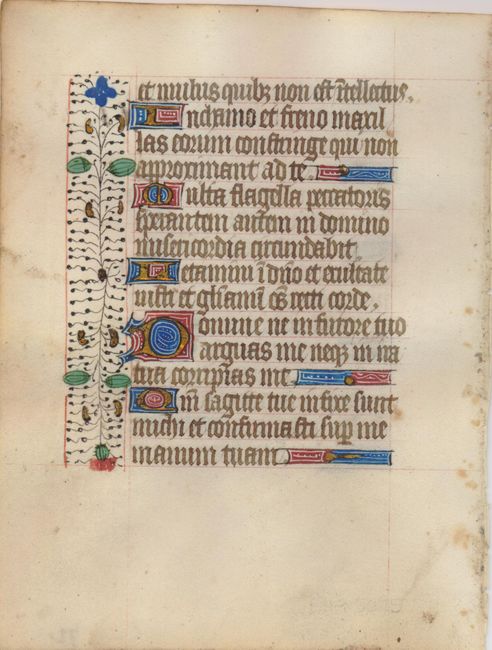 et mulus quibꝫ non est ītellectus.
In chamo et freno maxil
las eorum constringe qui non
approximant ad te
Multa flagella peccatoris
sperantem autem in domino
misericordia circundabit.
Letamini ī dn̄o et exultate
iusti et gl̄iamī om̄s recti corde.
Domine ne in furore tuo
arguas me neqꝫ in ira
tua corripias me
Qm̄ sagitte tue infixe sunt
michi et confirmasti sup̄ me
manum tuam